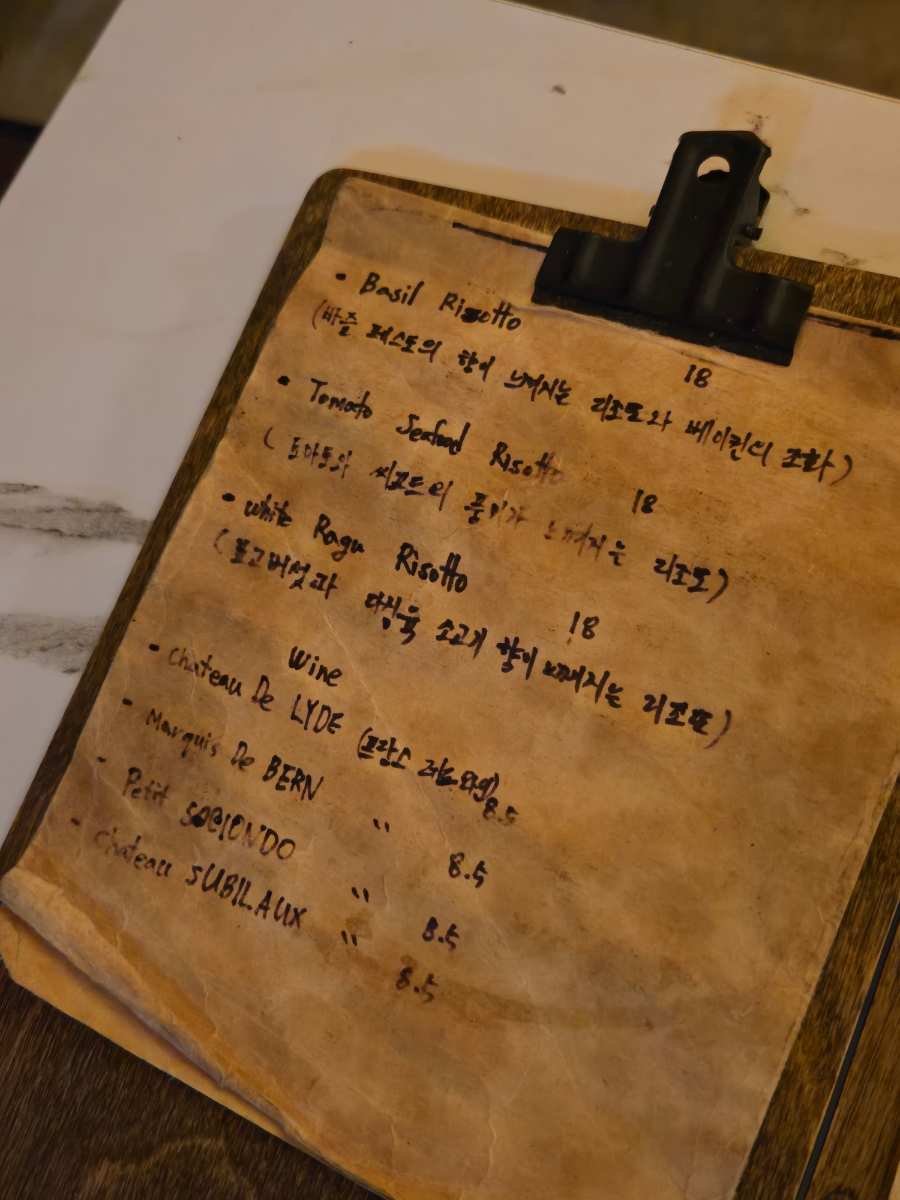 • Basil Risotto 18
(바질 페스토의 향이 느껴지는 리조또와 베이컨의 조화)
• Tomato Seafood Risotto 18
(토마토와 씨푸드의 풍미가 느껴지는 리조또)
• White Ragu Risotto 18
(표고버섯과 다짐육 소고기 향이 느껴지는 리조또)
Wine
- Chateau De LYDE (프랑스 레드와인) 8.5
- Marquis De BERN " 8.5
- Petit SOCIONDO " 8.5
- Chateau SUBILAUX " 8.5